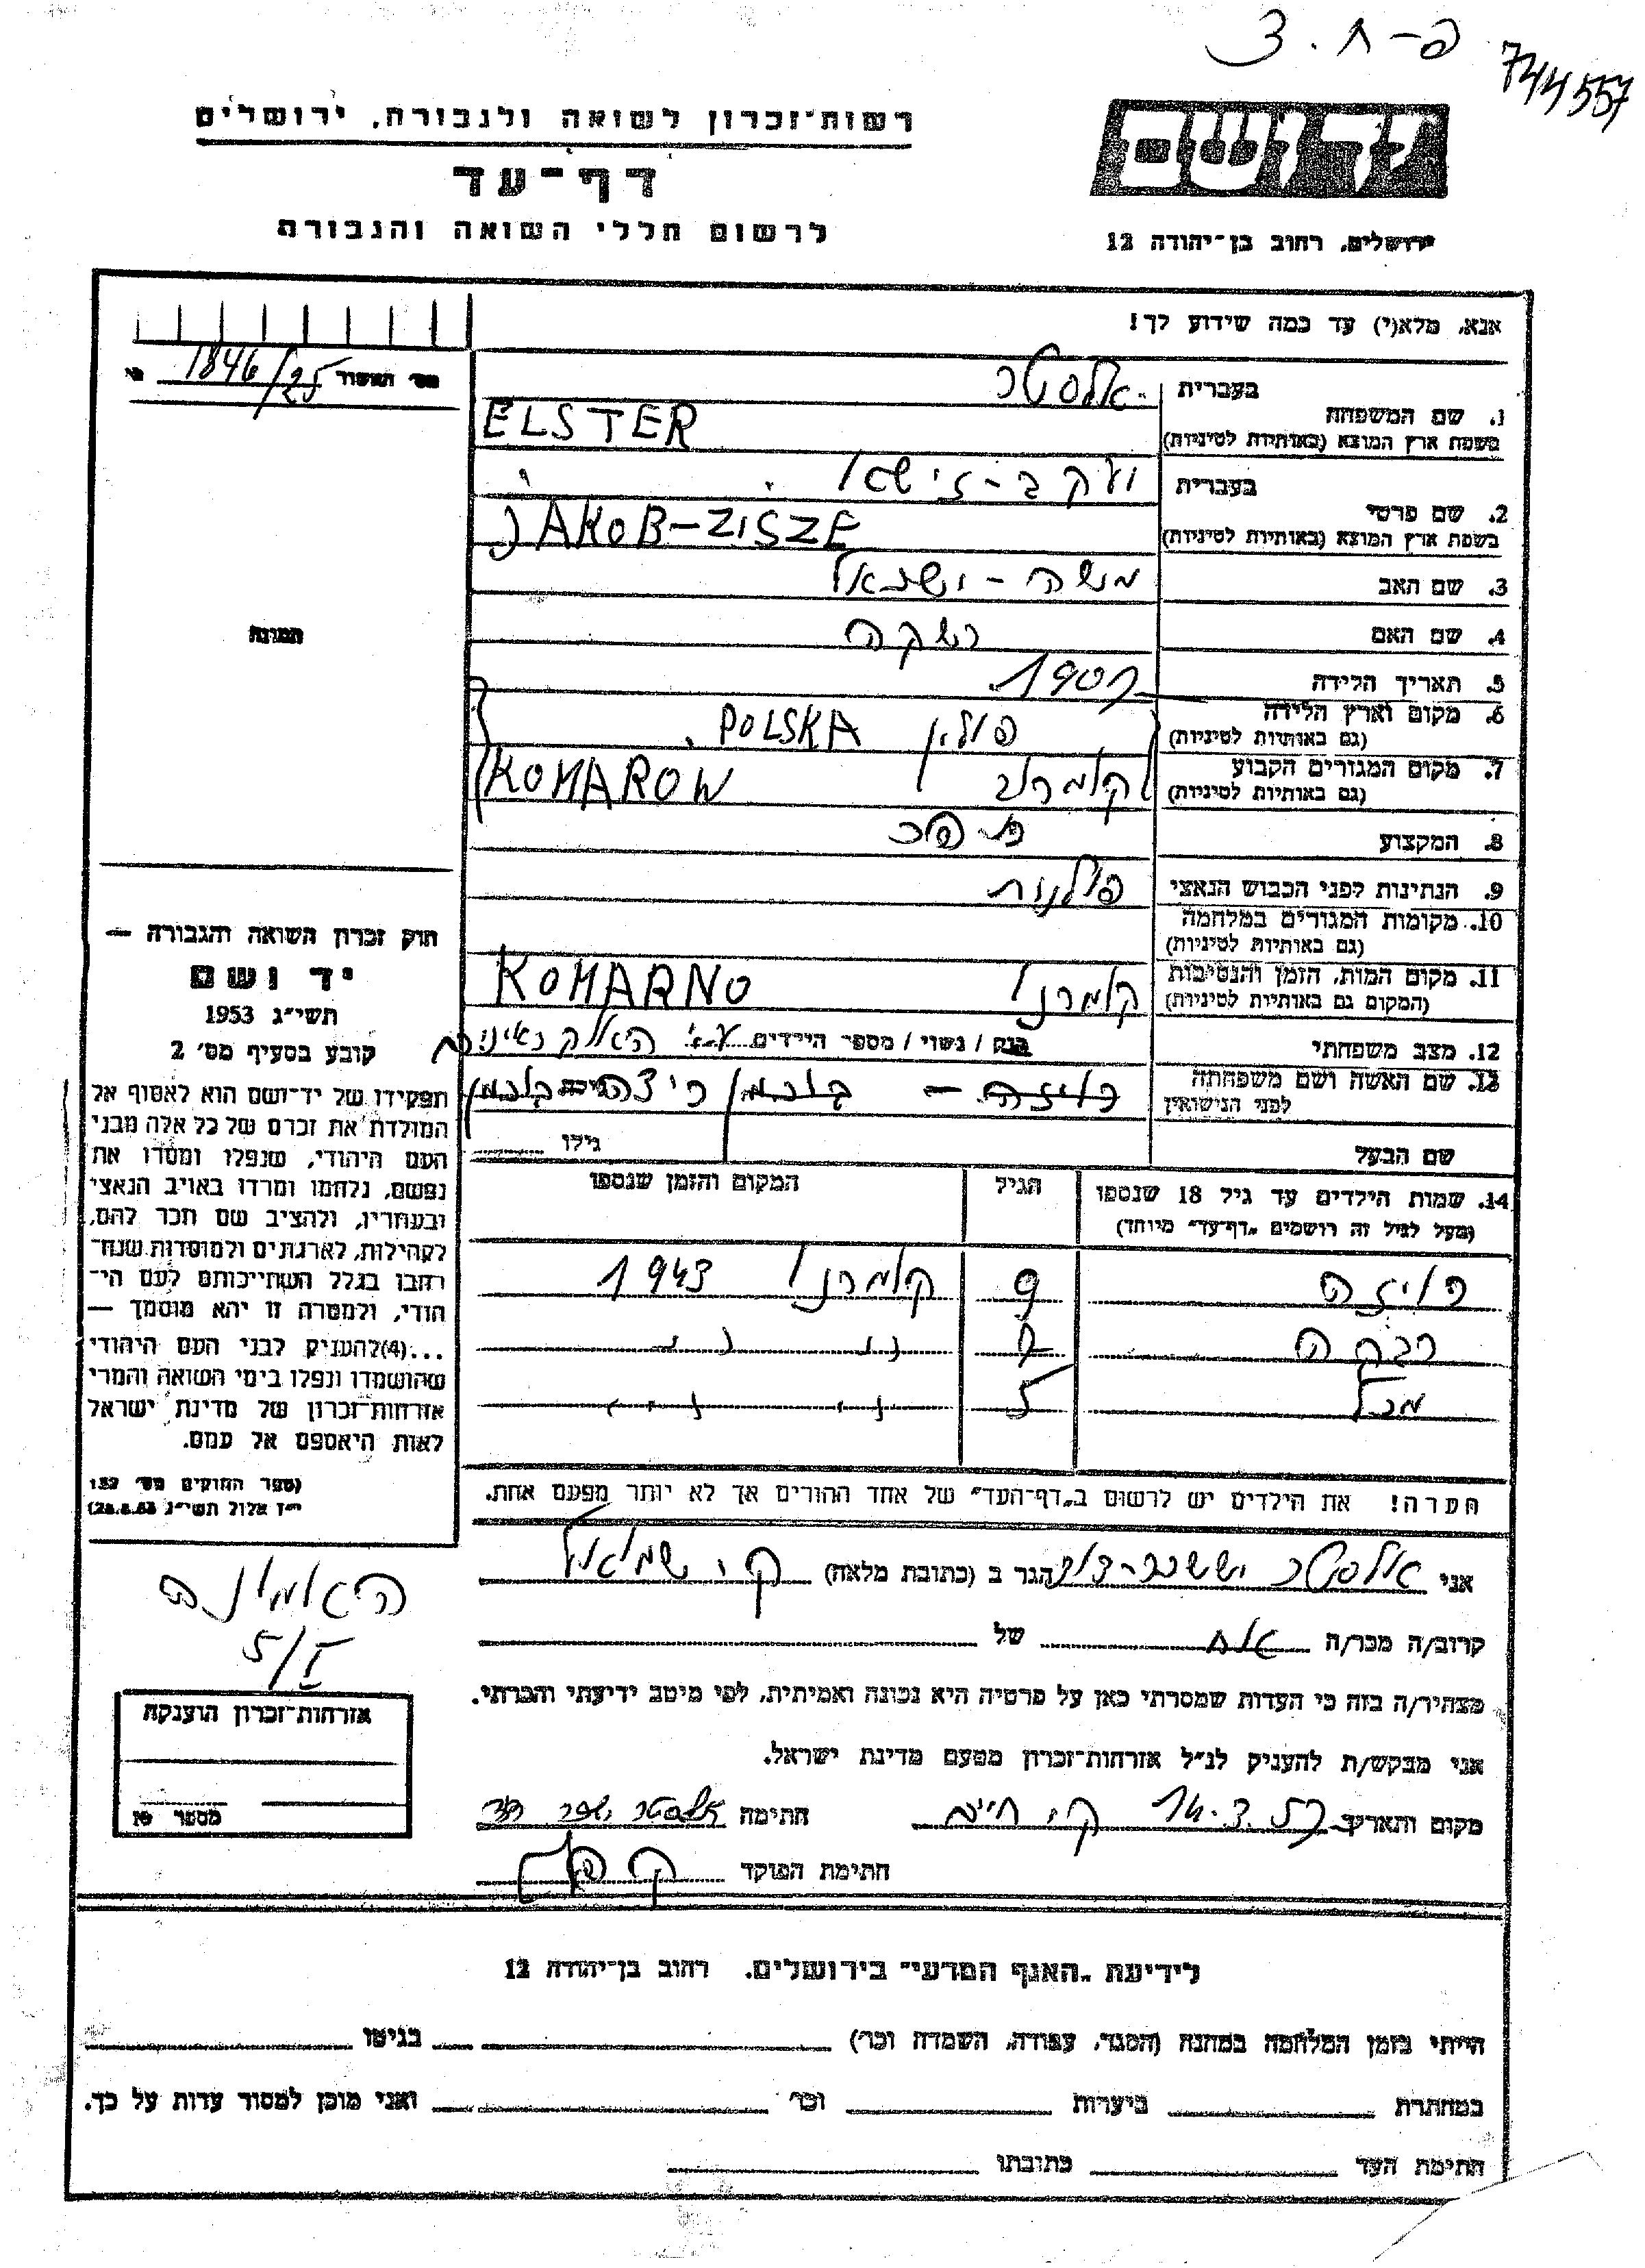 744557
רשות־זכרון לשואה ולגבורה, ירושלים
דף־עד
לרשום חללי השואה והגבורה
ירושלים, רחוב בן־יהודה 12
אנא, מלא(י) עד כמה שידוע לך!
1846/25
1. שם המשפחה
בעברית אלסטר
בשפת ארץ המוצא (באותיות לטיניות) ELSTER
2. שם פרטי
בעברית יעקב-זישא
בשפת ארץ המוצא (באותיות לטיניות) JAKOB-ZISZE
3. שם האב משה-ישראל
4. שם האם
5. תאריך הלידה
6. מקום וארץ הלידה
(גם באותיות לטיניות) פולין POLSKA
7. מקום המגורים הקבוע
(גם באותיות לטיניות) KOMAROW
8. המקצוע
9. הנתינות לפני הכבוש הנאצי פולנית
10. מקומות המגורים במלחמה
(גם באותיות לטיניות)
11. מקום המות, הזמן והנסיבות
(המקום גם באותיות לטיניות) קומרנו KOMARNO
12. מצב משפחתי
נשוי / מספר הילדים
13. שם האשה ושם משפחתה
לפני הנישואין
שם הבעל
גילו
14. שמות הילדים עד גיל 18 שנספו
(מעל לגיל זה רושמים „דף־עד" מיוחד)
הגיל
המקום והזמן שנספו
9 קומרנו 1943
רבקה
5
הערה! את הילדים יש לרשום ב„דף־העד" של אחד ההורים אך לא יותר מפעם אחת.
תמונה
חוק זכרון השואה והגבורה —
יד ושם
תשי"ג 1953
קובע בסעיף מס' 2
תפקידו של יד־ושם הוא לאסוף אל
המולדת את זכרם של כל אלה מבני
העם היהודי, שנפלו ומסרו את
נפשם, נלחמו ומרדו באויב הנאצי
ובעוזריו, ולהציב שם וזכר להם,
לקהילות, לארגונים ולמוסדות שנח־
רבו בגלל השתייכותם לעם הי־
הודי, ולמטרה זו יהא מוסמך —
...(4) להעניק לבני העם היהודי
שהושמדו ונפלו בימי השואה והמרי
אזרחות־זכרון של מדינת ישראל
לאות היאספם אל עמם.
(ספר החוקים מס' 132
י"ז אלול תשי"ג 28.8.53)
אני אלסטר יששכר- הגר ב (כתובת מלאה) ק. שמואל
5/I
קרוב/ה מכר/ה אח של
מצהיר/ה בזה כי העדות שמסרתי כאן על פרטיה היא נכונה ואמיתית, לפי מיטב ידיעתי והכרתי.
אני מבקש/ת להעניק לנ"ל אזרחות־זכרון מטעם מדינת ישראל.
מקום ותאריך ק. חיים חתימה אלסטר
חתימת הפוקד
אזרחות־זכרון הוענקה
מספר
לידיעת „האגף המדעי" בירושלים, רחוב בן־יהודה 12
הייתי בזמן המלחמה במחנה (הסגר, עבודה, השמדה וכו') בגיטו
במחתרת ביערות וכו' ואני מוכן למסור עדות על כך.
חתימת העד כתובתו